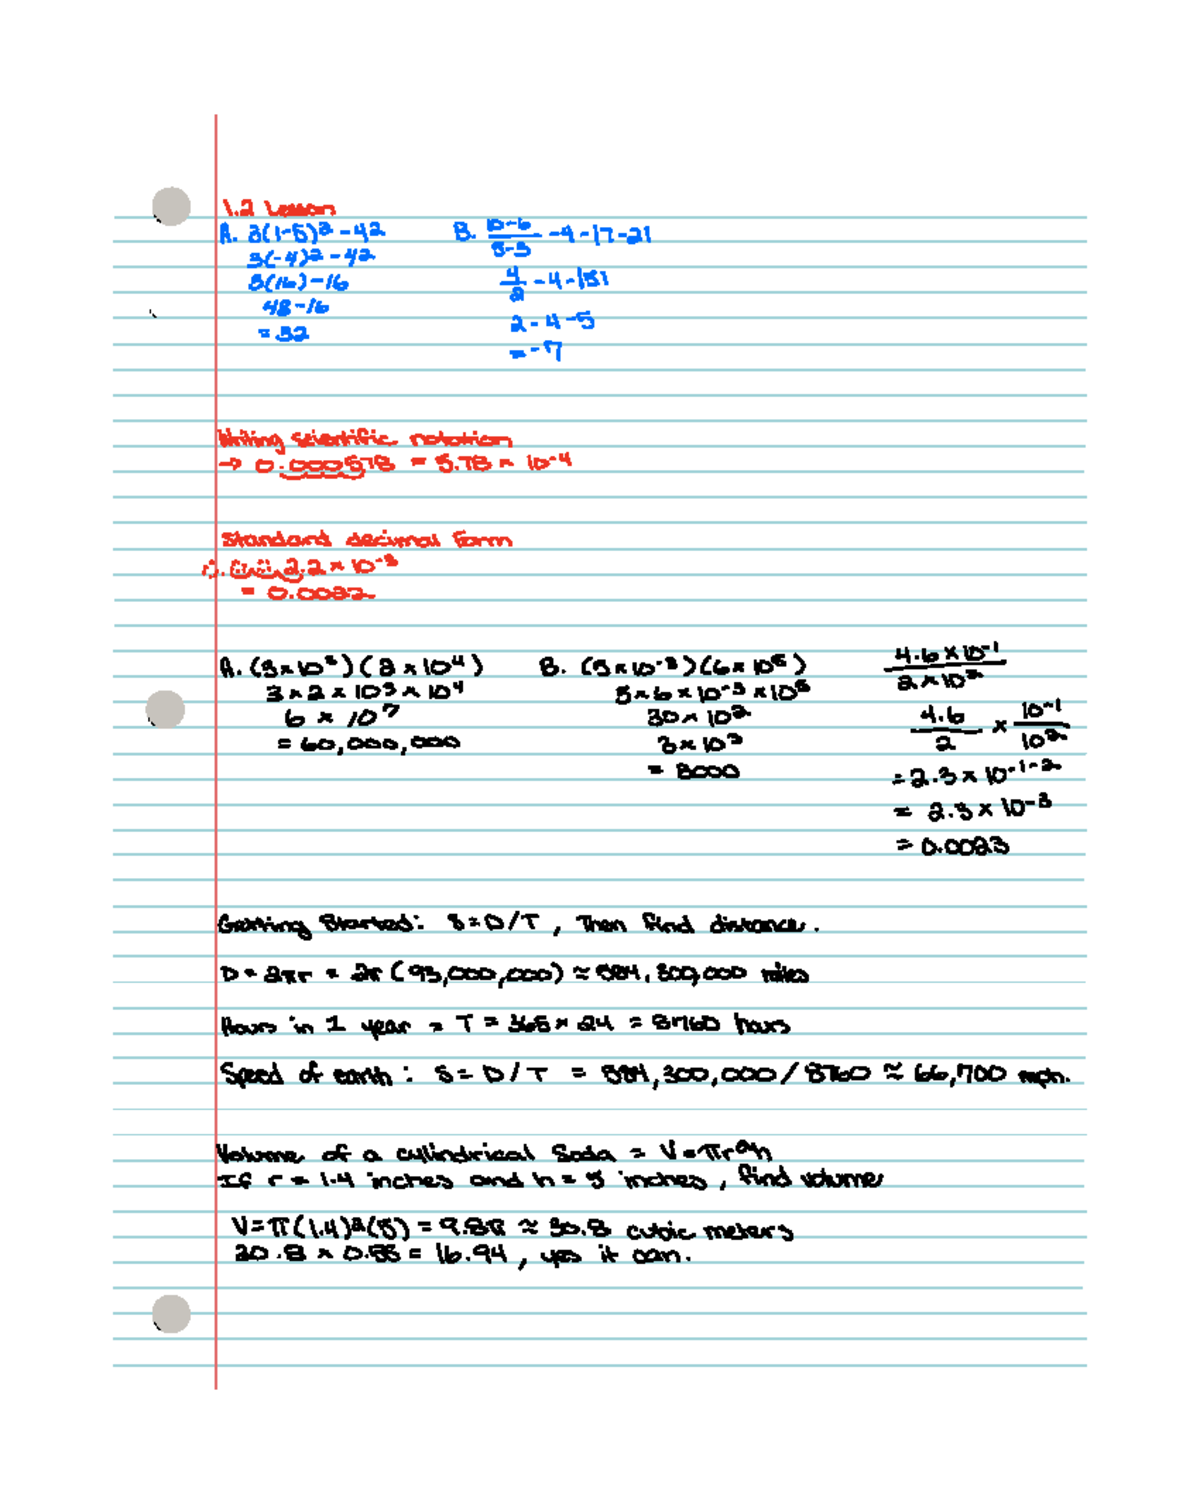 1.2 Lesson
A. 3(1-5)² - 4²
3(-4)² - 4²
3(16) - 16
48 - 16
= 32
B. 10-6/5-3 - 4 - |7-2|
4/2 - 4 - |5|
2 - 4 - 5
= -7
Writing scientific notation
→ 0.000578 = 5.78 × 10⁻⁴
Standard decimal form
2.2 × 10⁻³
= 0.0022
A. (3×10³)(2×10⁴)
3×2×10³×10⁴
6 × 10⁷
= 60,000,000
B. (5×10⁻³)(6×10⁵)
5×6×10⁻³×10⁵
30×10²
3×10³
= 3000
4.6×10⁻¹/2×10²
4.6/2 × 10⁻¹/10²
= 2.3×10⁻¹⁻²
= 2.3×10⁻³
= 0.0023
Getting Started: S=D/T, Then find distance.
D = 2πr = 2π(93,000,000) ≈ 584,300,000 miles
Hours in 1 year = T = 365 × 24 = 8760 hours
Speed of earth: S = D/T = 584,300,000/8760 ≈ 66,700 mph.
Volume of a cylindrical Soda = V=πr²h
If r = 1.4 inches and h = 5 inches, find volume
V=π(1.4)²(5) = 9.8π ≈ 30.8 cubic meters
30.8 × 0.55 = 16.94, yes it can.